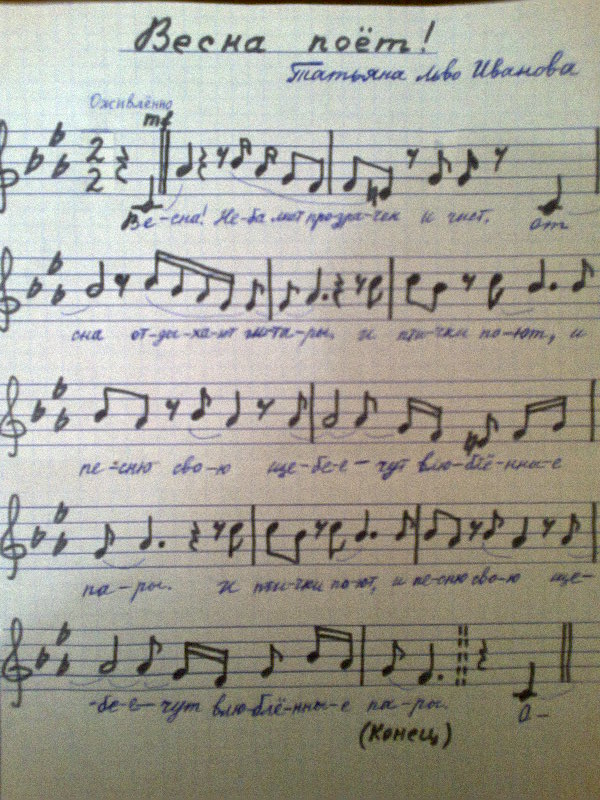 Весна поёт!
Татьяна Льво Иванова
Оживлённо
mf
2
2
Ве-сна! Не-ба мот прозра-чен и чист. От
сна от-ды-ха-ют ги-та-ры. И пти-чки по-ют, и
пе-сню сво-ю ще-бе-е-чут влю-блё-нны-е
па-ры. И пти-чки по-ют, и пе-сню сво-ю ще-
-бе-е-чут влю-блё-нны-е па-ры. О-
(Конец)